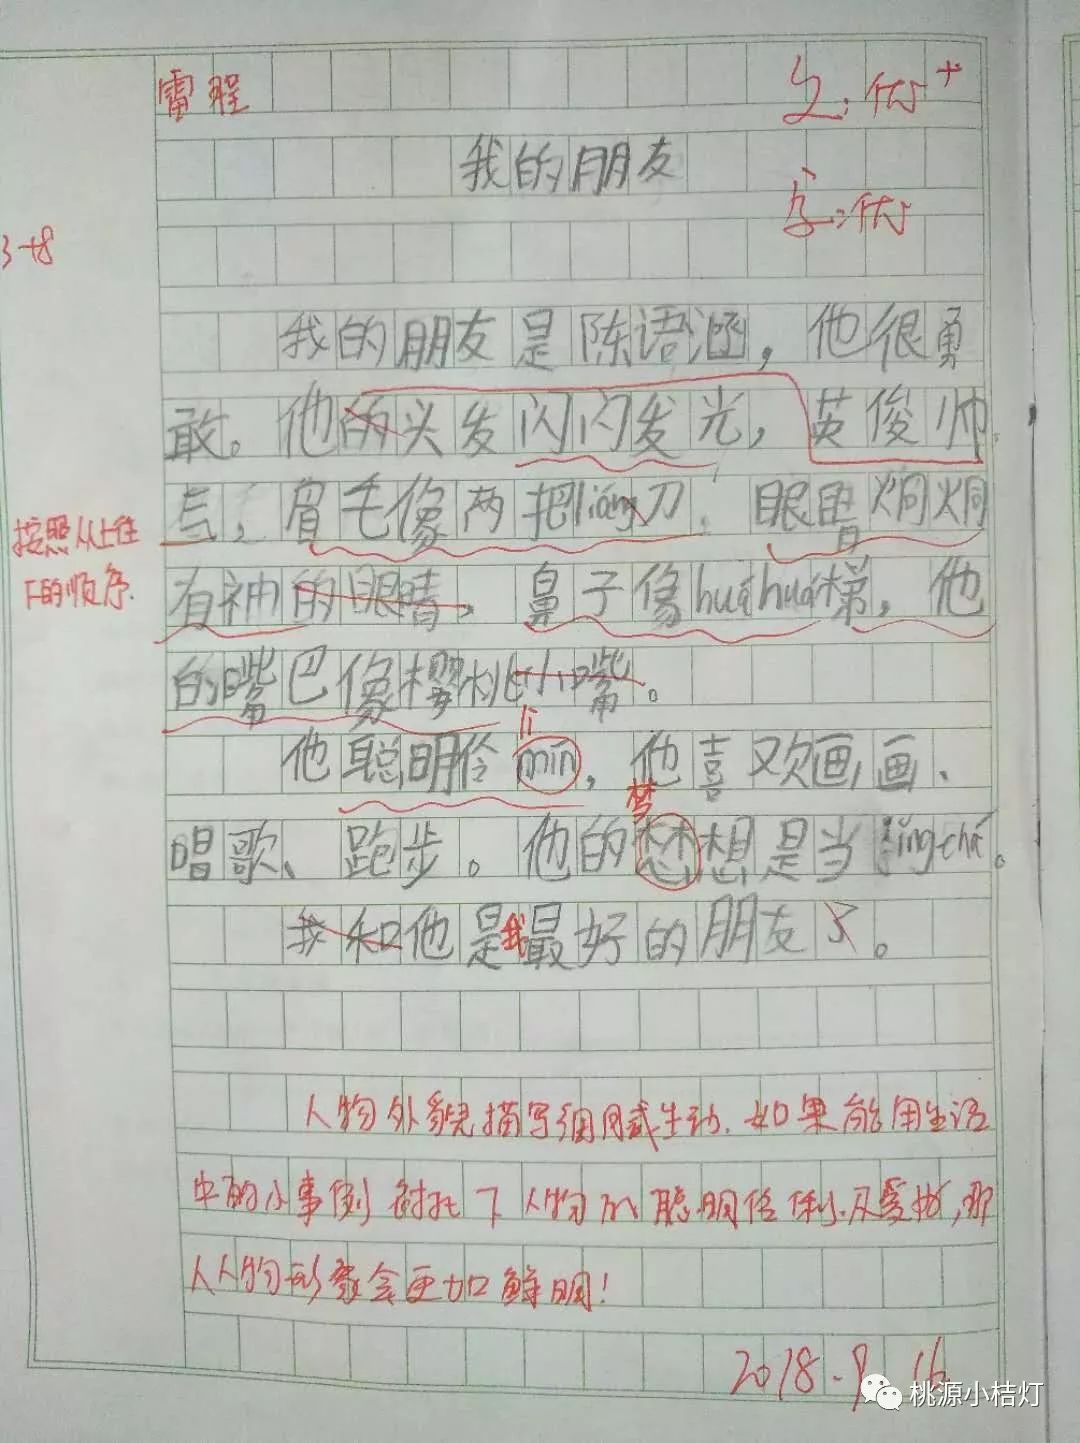 雷程
文:优+
我的朋友
字:优
3+8
我的朋友是陈语涵，他很勇
敢。他的头发闪闪发光，英俊帅
气，眉毛像两把liáng刀，眼睛炯炯
按照从上往
下的顺序.
有神的眼睛，鼻子像huáhuá梯，他
的嘴巴像樱桃小嘴。
他聪明伶mín，他喜欢画画、
俐
唱歌、跑步。他的想是当jǐngchá。
梦
我和他是我最好的朋友了。
人物外貌描写细腻生动.如果能用生活
中的小事例衬托下人物的聪明伶俐.及爱好,那
人物形象会更加鲜明!
2018.9.16
桃源小桔灯